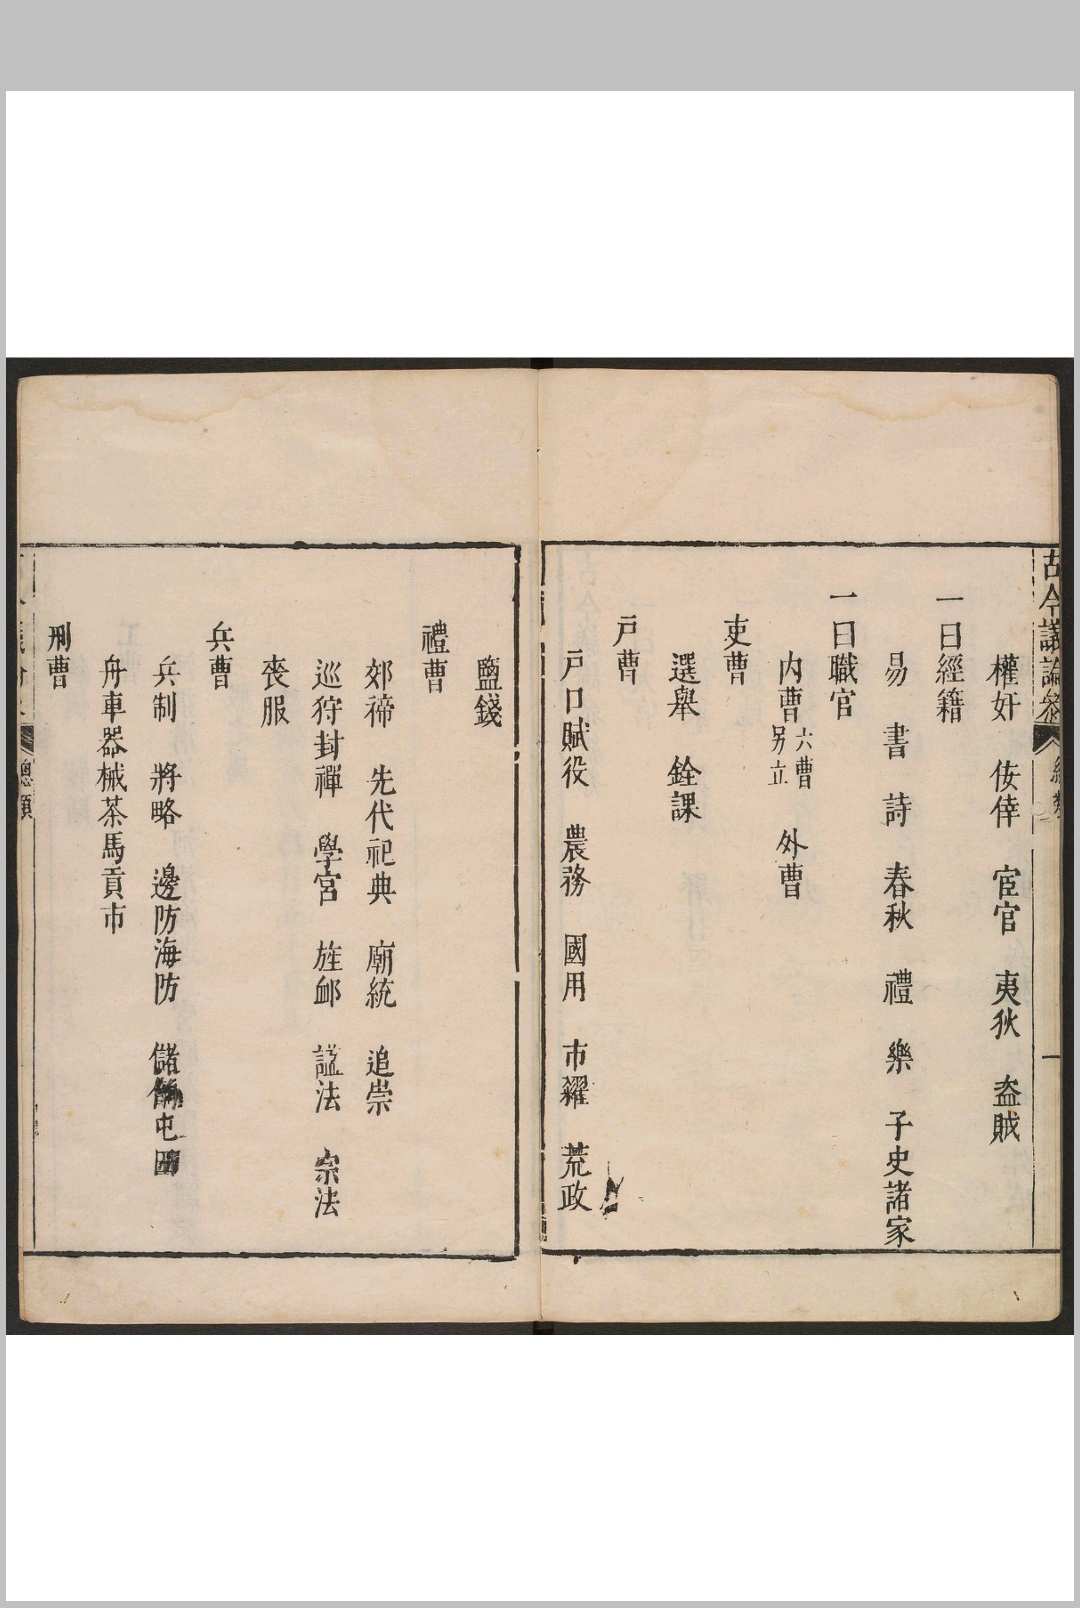 古今議論參
總類
一
權奸　佞倖　宦官　夷狄　盗賊
一曰經籍
易　書　詩　春秋　禮　樂　子史諸家
一曰職官
内曹六曹另立　外曹
吏曹
選舉　銓課
戶曹
戶口賦役　農務　國用　市糴　荒政
鹽錢
禮曹
郊禘　先代祀典　廟統　追崇
巡狩封禪　學宮　旌䘏　諡法　宗法
喪服
兵曹
兵制　將略　邊防海防　儲偹屯田
舟車器械茶馬貢市
刑曹
總類